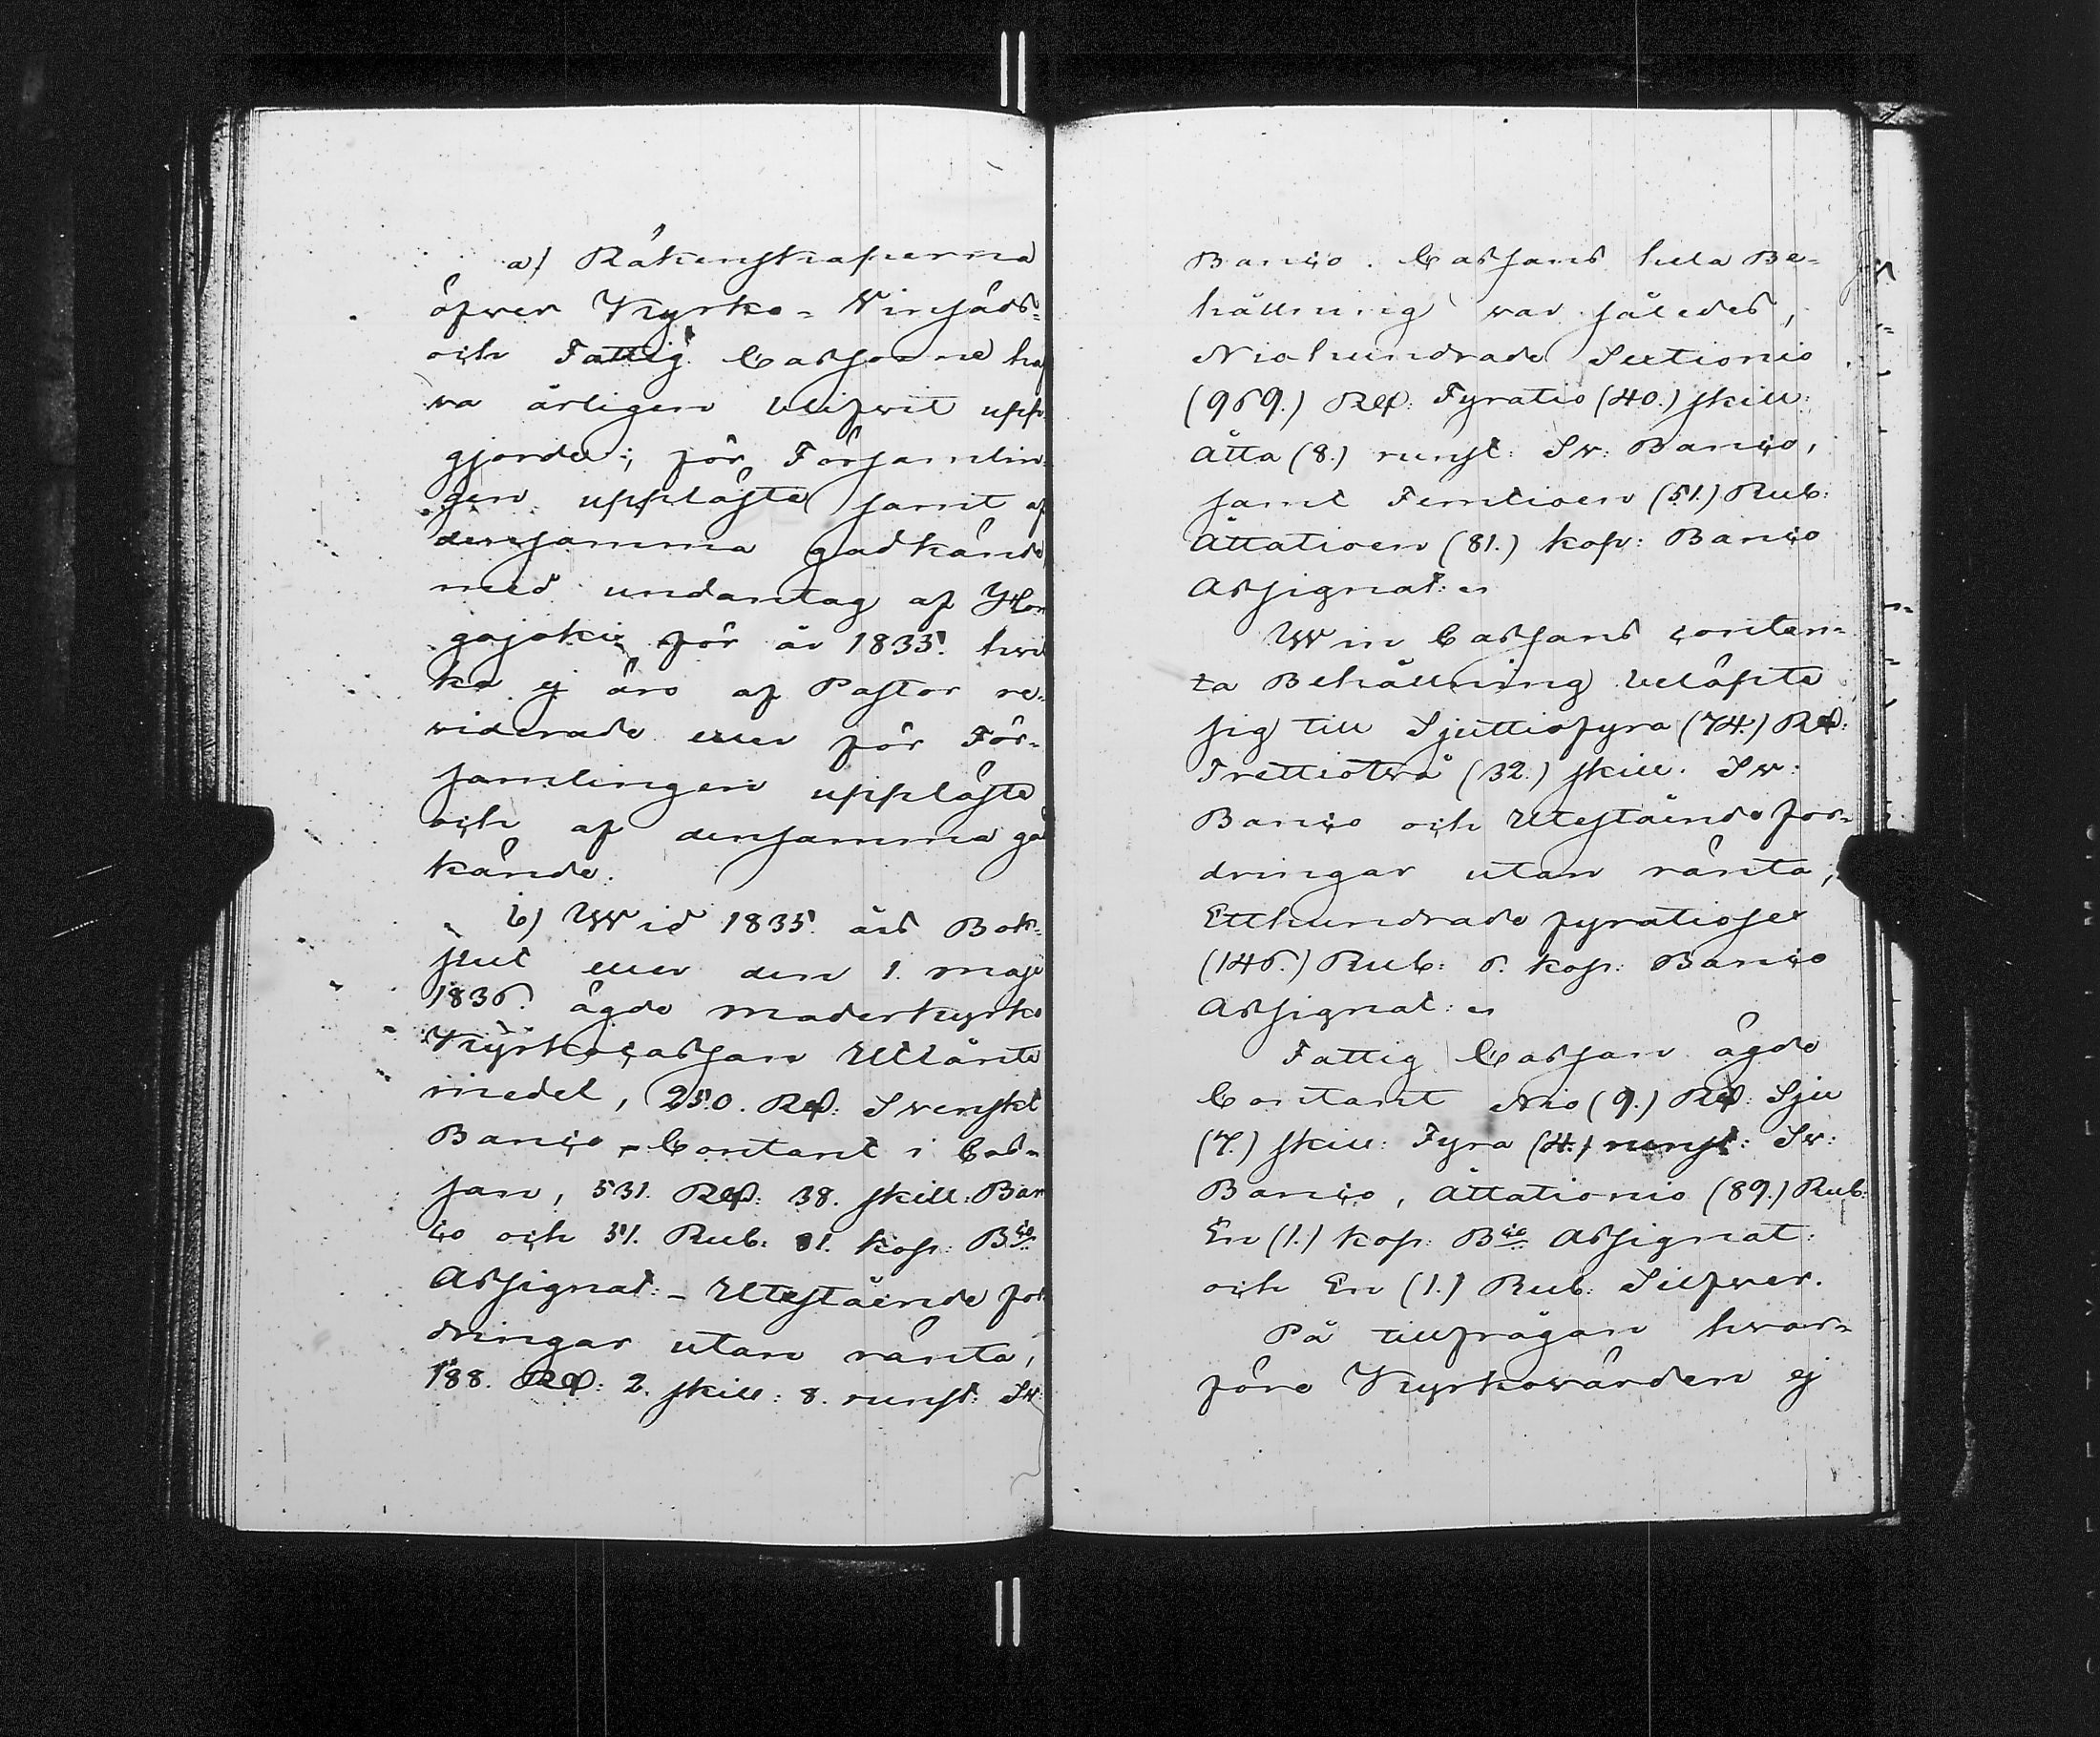 a) Räkenskaperna
öfver Kyrko- Vinsäds-
och Fattig Cassorne haf
va årligen blifvit upp-
gjorde; för Försanlin-
gen upplaste samt af
densamma godkände
med undantag af Hon
gajoki för år 1835. hvil
ka ej äro af Pastor re-
viderade eller för För-
samlingen uppläste
och af densamma god
kände.
b) Wid 1835. års Bok-
slut eller den 1. Maji
1836. ägde moderkyrko
Kyrkocassan Utlänte
medel, 250. Rd: Svenskt
Banco - Contant i Cas-
san, 531. Rd: 38. skill: Ban
co och 51. Rub. 81. kop: Bco
Assignat: - Utestående for
dringar utan ränta,
188. Rd: 2. skill: 8. runst: Sv:
Banco. Cassans hela Be-
hållning var således,
Niohundrade Sextionio
(969.) Rd: Fyratio (40.) skill:
Åtta (8.) runst: Sv: Banco,
samt Femtioen (51.) Rub:
Åttatioen (81.) kop: Banco
Assignat:er
Win Cassans conten-
ta Behållning belöpte
sig till Sjuttiofyra (74.) Rd:
Trettiotvå (32.) skill. Sv:
Banco och Utestående for-
dringar utan ränta,
Etthundrade fyratiosex
(146.) Rub: 6. kop: Banco
Assignat:er
Fattig Cassan ägde
Contant Nio (9.) Rd: Sju
(7.) skill: Fyra (4.) runst: Sv:
Banco, Åttationio (89.) Rub:
En (1.) kop: Bco Assignat:
och En (1.) Rub: Silfver.
På tillfrågan hvar-
före Kyrkovärden ej